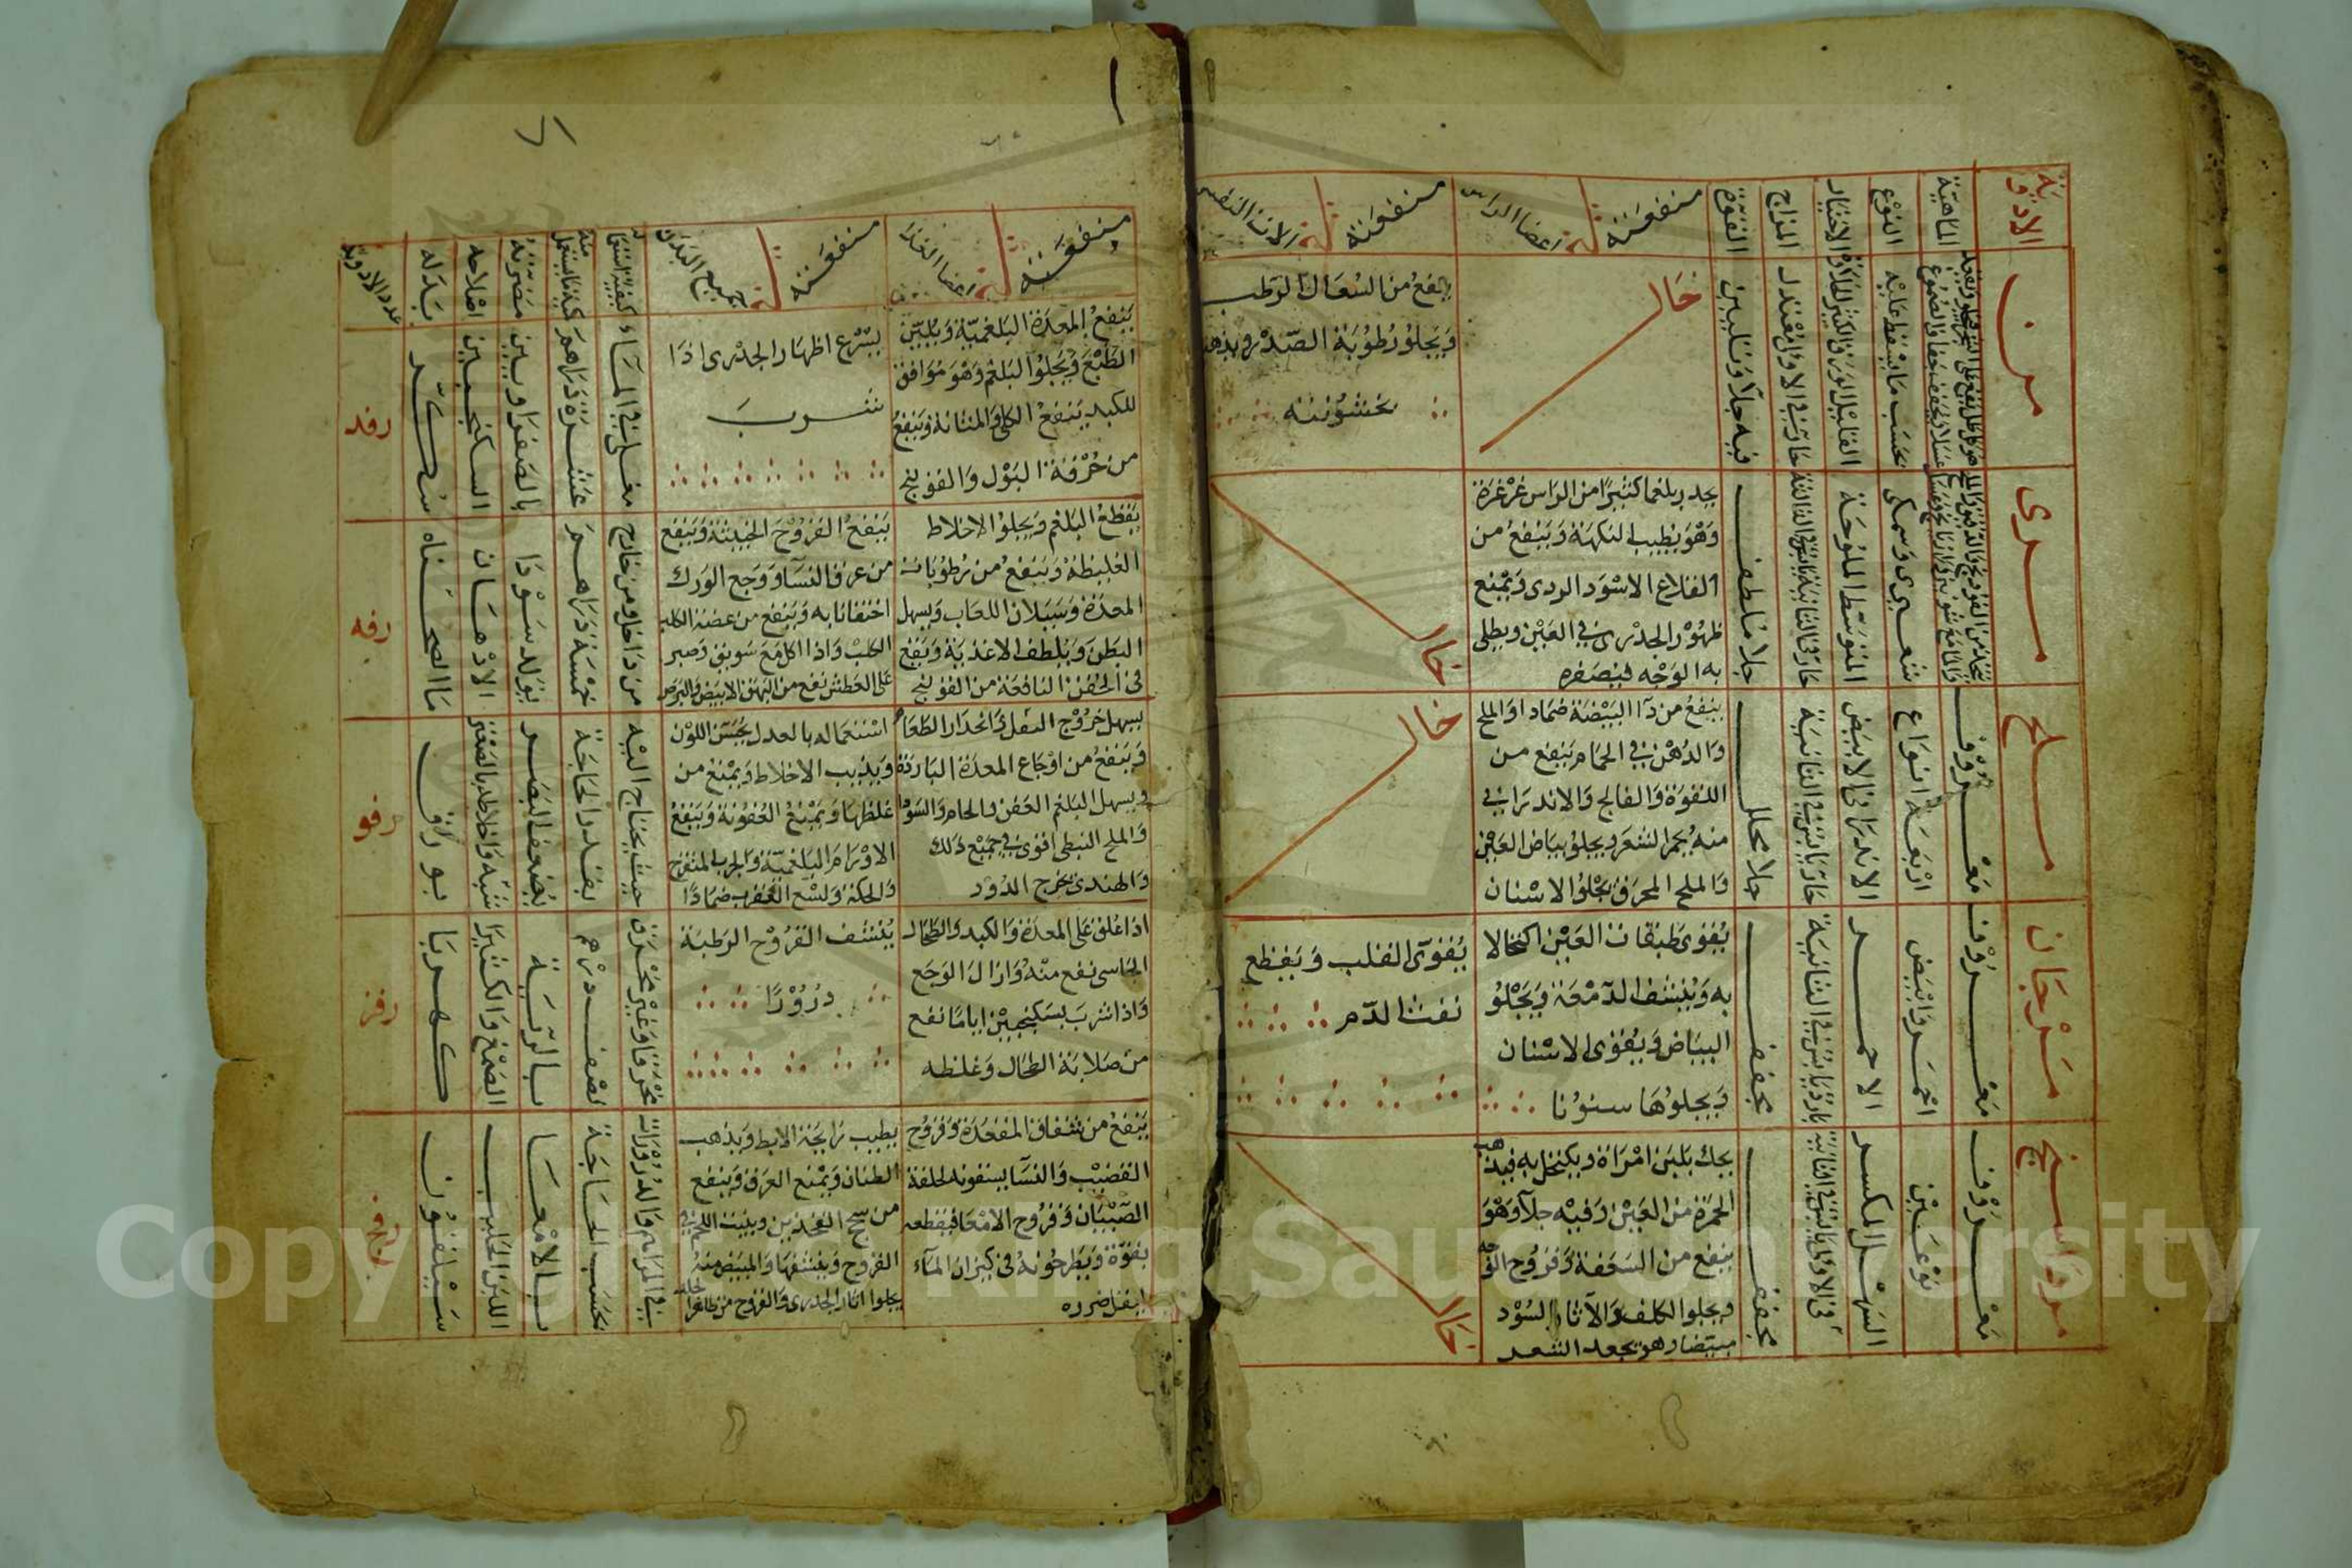 الادوية
الماهية
النوع
الاختيار
المزاج
القوة
منفعته في اعضا الراس
منفعته في الات النفس
من
بحسب ما يسقط عليه
حار في الاول معتدل
فيه جلا وتليين
خال
ينفع من السعال الرطب
ويجلو رطوبة الصدر ويذهب
خشونته
مري
شعيري وسمكي
المتوسط الملوحة
جلا ملطف
يحدر بلغما كثيرا من الراس غرغرة
وهو يطيب النكهة وينفع من
القلاع الاسود الردى ويمنع
ظهور الجدرى في العين ويطلى
به الوجه فيضمره
خال
ملح
معروف
اربعة انواع
الاندرانى الابيض
حار يابس في الثانية
جلا محلل
ينفع من دآ البيضة ضمادا والملح
والدهن في الحمام ينفع من
اللقوة والفالج والاندراني
منه يحمر الشعر ويجلو بياض العين
والملح المحرق يجلو الاسنان
خال
مرجان
معروف
احمر وابيض
الاحمر
بارد يابس في الثانية
مجفف
يقوى طبقات العين اكتحالا
به وينشف الدمعة ويجلو
البياض ويقوى الاسنان
ويجلوها سنونا
يقوى القلب ويقطع
نفث الدم
مرداسنج
معروف
نوعين
السهل المكسر
مجفف
يحك بلبن امراة ويكتحل به فيذهب
الحمرة من العين وفيه جلآ وهو
ينفع من السعفة وقروح الفم
ويجلوا الكلف والآثار السود
مبيضا وهو يجعد الشعر
خال
منفعته في اعضا الغذا
منفعته في جميع البدن
كيفية استعماله
كمية ما يستعمل منه
مضرته
اصلاحه
بدله
عدد الادوية
ينفع المعدة البلغمية ويلين
الطبع ويجلوا البلغم وهو موافق
للكبد ينفع الكلى والمثانة وينفع
من حرقة البول والقولنج
يسرع اظهار الجدرى اذا
شرب
مغلى في المآء
عشرة دراهم
بالصفراويين
السكنجبين
سكر
رفد
يقطع البلغم ويجلوا الاخلاط
الغليظة وينفع من رطوبات
المعدة وسيلان اللعاب ويسهل
البطن ويلطف الاغذية وينفع
فى الحقن النافعة من القولنج
ينفع القروح الخبيثة وينفع
من عرق النسآ ووجع الورك
احتقانا به وينفع من عضة الكلب
الكلب واذا اكل مع سويق وصبر
على العطش نفع من البهق الابيض والبرص
من داخل ومن خارج
خمسة دراهم
يولد سودا
الادهان
ما الصحناه
رفه
يسهل خروج الثفل وانحدار الطعام
وينفع من اوجاع المعدة الباردة
ويسهل البلغم العفن والخام والسودا
والملح النبطى اقوى في جميع ذلك
والهندى يخرج الدود
استعماله بالعدل يحسن اللون
ويذيب الاخلاط ويمنع من
غلظها ويمنع العفونة وينفع
الاورام البلغمية والجرب المتقرح
والحكة ولسع العقرب ضمادا
حيث يحتاج اليه
بقدر الحاجة
يضعف البصر
بورق
رفو
اذا علق على المعدة والكبد والطحال
الجاسى نفع منه وازال الوجع
واذا شرب بسكنجبين اياما نفع
من صلابة الطحال وغلظه
ينشف القروح الرطبة
ذرورا
محرقا وغير محرق
نصف درهم
بالرية
الصمغ والكثيرا
كهربا
رفز
ينفع من شقاق المقعدة وقروح
القضيب والنسآ يسقونه لخلفة
الصبيان وقروح الامعا فيقطعه
بقوة ويطرحونه فى كيزان المآء
ليقل ضرره
يطيب رايحة الابط ويذهب
الصنان ويمنع العرق وينفع
من سحج الفخذين وينبت اللحم في
القروح وينشفها والمبيض منه
يجلوا اثار الجدرى والقروح من ظاهر الجلد
في المراهم والذرورات
بحسب الحاجة
بالامعا
اللبن الحليب
سيلقون
رفح